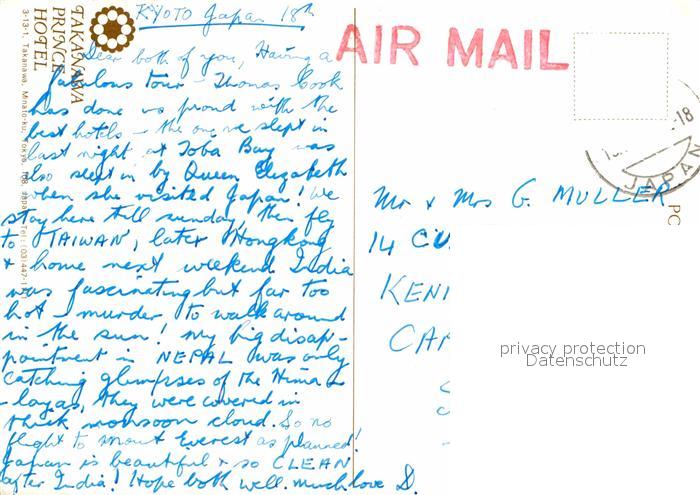 TAKANAWA
PRINCE
HOTEL
3-13-1, Takanawa, Minato-ku, Tokyo 108, Japan Tel: (03)447-11
KYOTO Japan 18th
Dear both of you, Having a
fabulous tour - Thomas Cook
has done us proud with the
best hotels - the one we slept in
last night at Toba Bay was
also slept in by Queen Elizabeth
when she visited Japan! We
stay here till sunday, then fly
to TAIWAN, later Hongkong
+ home next weekend India
was fascinating but far too
hot - murder to walk around
in the sun! my big disap-
pointment in NEPAL was only
catching glimpses of the Hima-
-layas, they were covered in
thick monsoon cloud. So no
flight to mount Everest as planned!
Japan is beautiful + so CLEAN
after India! Hope both well. much love S.
AIR MAIL
-18
JAPAN
PC
Mr & Mrs G. MULLER
14 CU
KENI
CAP
privacy protection
Datenschutz